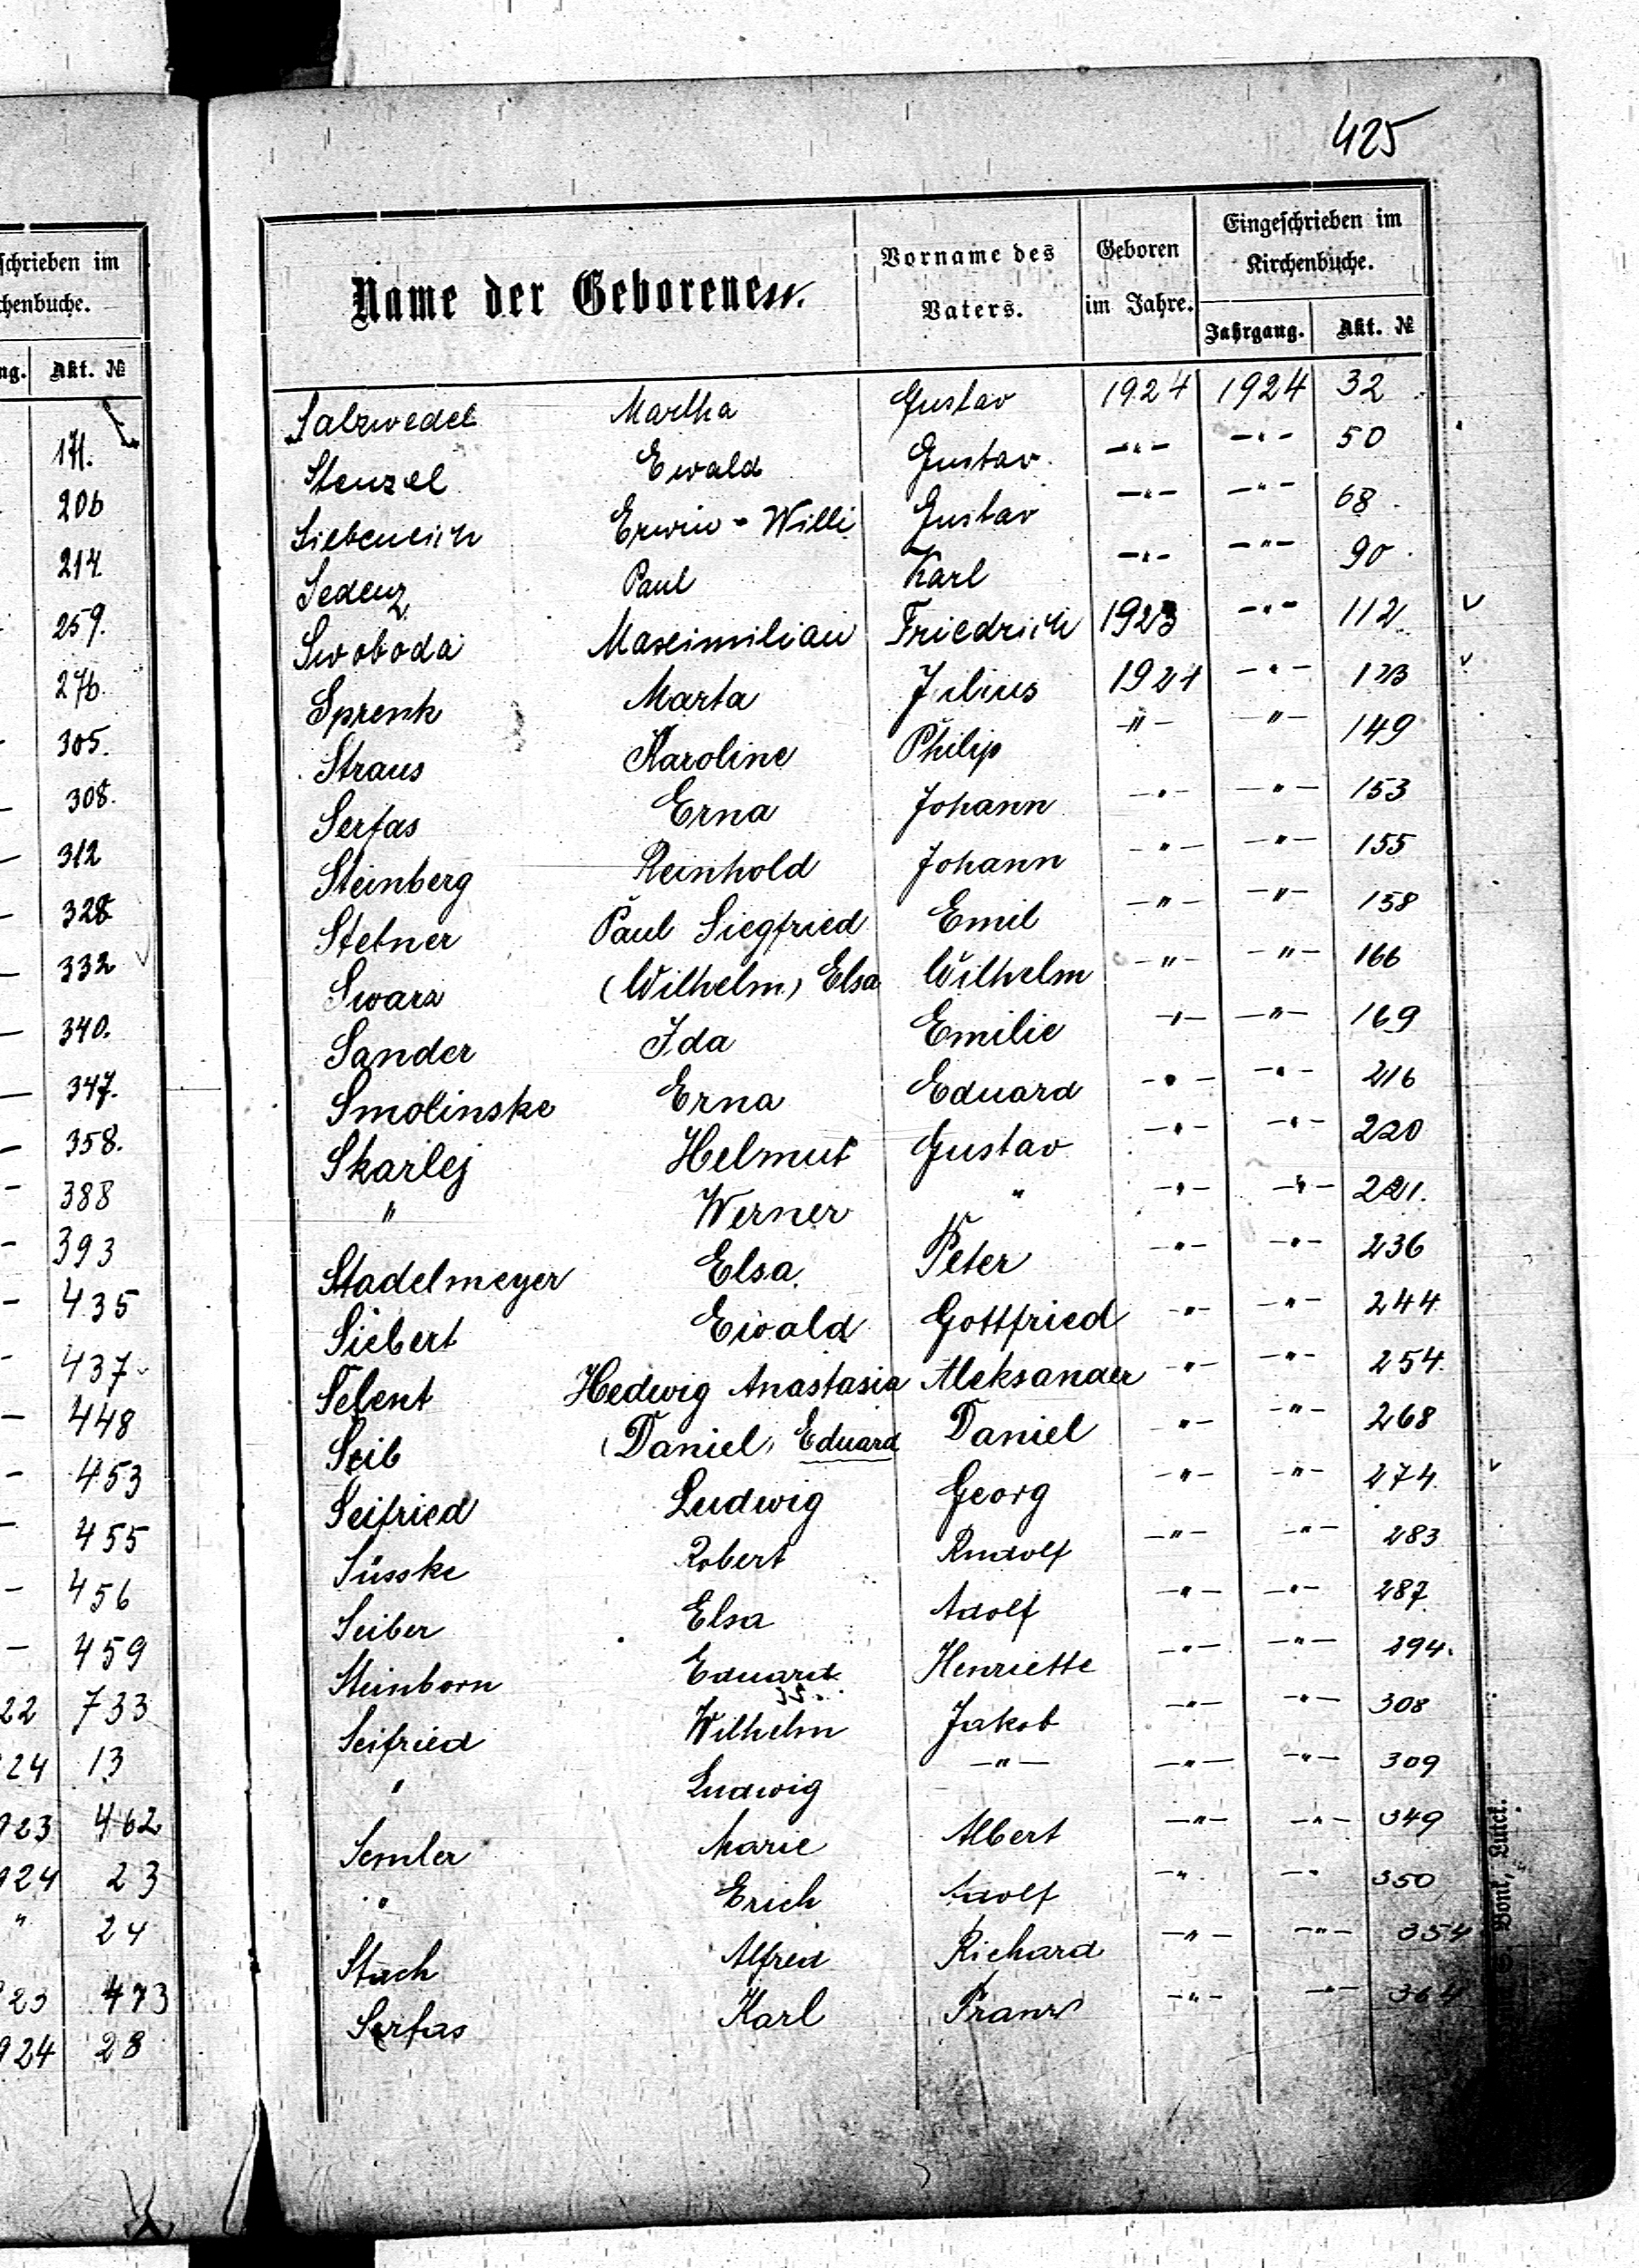 schrieben im
chenbuche.
ng. Akt. №
171.
206
214.
259.
276.
305.
308.
312
328
332
340.
347.
358.
388
393
435
437
448
453
455
456
459
22 733
24 13
923 462
924 23
" 24
23 473
924 28
425
Name der Geborenen.
Vorname des Vaters.
Geboren im Jahre.
Eingeschrieben im Kirchenbuche.
Jahrgang. Akt. №
Salzwedel Martha Gustav 1924 1924 32
Stenzel Ewald Gustav -"- -"- 50
Liebeneich Erwin - Willi Gustav -"- -"- 68
Sedenz Paul Karl -"- -"- 90
Swoboda Maximilian Friedrich 1923 -"- 112
Sprenk Marta Julius 1924 -"- 123
Straus Karoline Philip -"- -"- 149
Serfas Erna Johann -"- -"- 153
Steinberg Reinhold Johann -"- -"- 155
Stebner Paul Siegfried Emil -"- -"- 158
Swarz (Wilhelm) Elsa Wilhelm -"- -"- 166
Sander Ida Emilie -"- -"- 169
Smolinske Erna Eduard -"- -"- 216
Skarlej Helmut Gustav -"- -"- 220
" Werner " -"- -"- 221.
Stadelmeyer Elsa Peter -"- -"- 236
Siebert Ewald Gottfried -"- -"- 244
Selent Hedwig Anastasia Aleksander -"- -"- 254
Seib (Daniel) Eduard Daniel -"- -"- 268
Seifried Ludwig Georg -"- -"- 274
Süsske Robert Rudolf -"- -"- 283
Seiber Elsa Adolf -"- -"- 287
Steinborn Eduard Henriette -"- -"- 294.
Seifried Wilhelm Jakob -"- -"- 308
" Ludwig -"- -"- -"- 309
Semler Marie Albert -"- -"- 349
" Erich Adolf -"- -"- 350
Stach Alfred Richard -"- -"- 354
Serfas Karl Franz -"- -"- 364